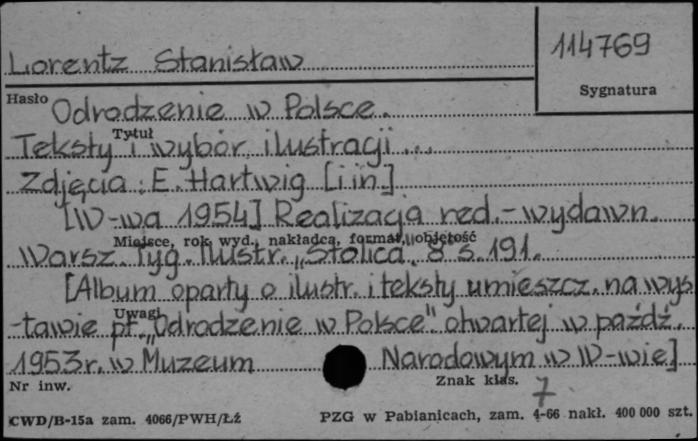 114769
Lorentz Stanisław
Sygnatura
Hasło Odrodzenie w Polsce.
Tytuł
Teksty i wybór ilustracji...
Zdjęcia: E. Hartwig [i in.]
[W-wa 1954] Realizacja red.-wydawn.
Miejsce, rok wyd., nakładca, format, objętość
Warsz. Tyg. Ilustr. „Stolica" 8 s. 191.
[Album oparty o ilustr. i teksty umieszcz. na wys
Uwagi
-tawie pt. „Odrodzenie w Polsce" otwartej w paźdź.
1953r. w Muzeum Narodowym w W-wie]
Nr inw. Znak klas. 7
CWD/B-15a zam. 4066/PWH/Łź PZG w Pabianicach, zam. 4-66 nakł. 400 000 szt.